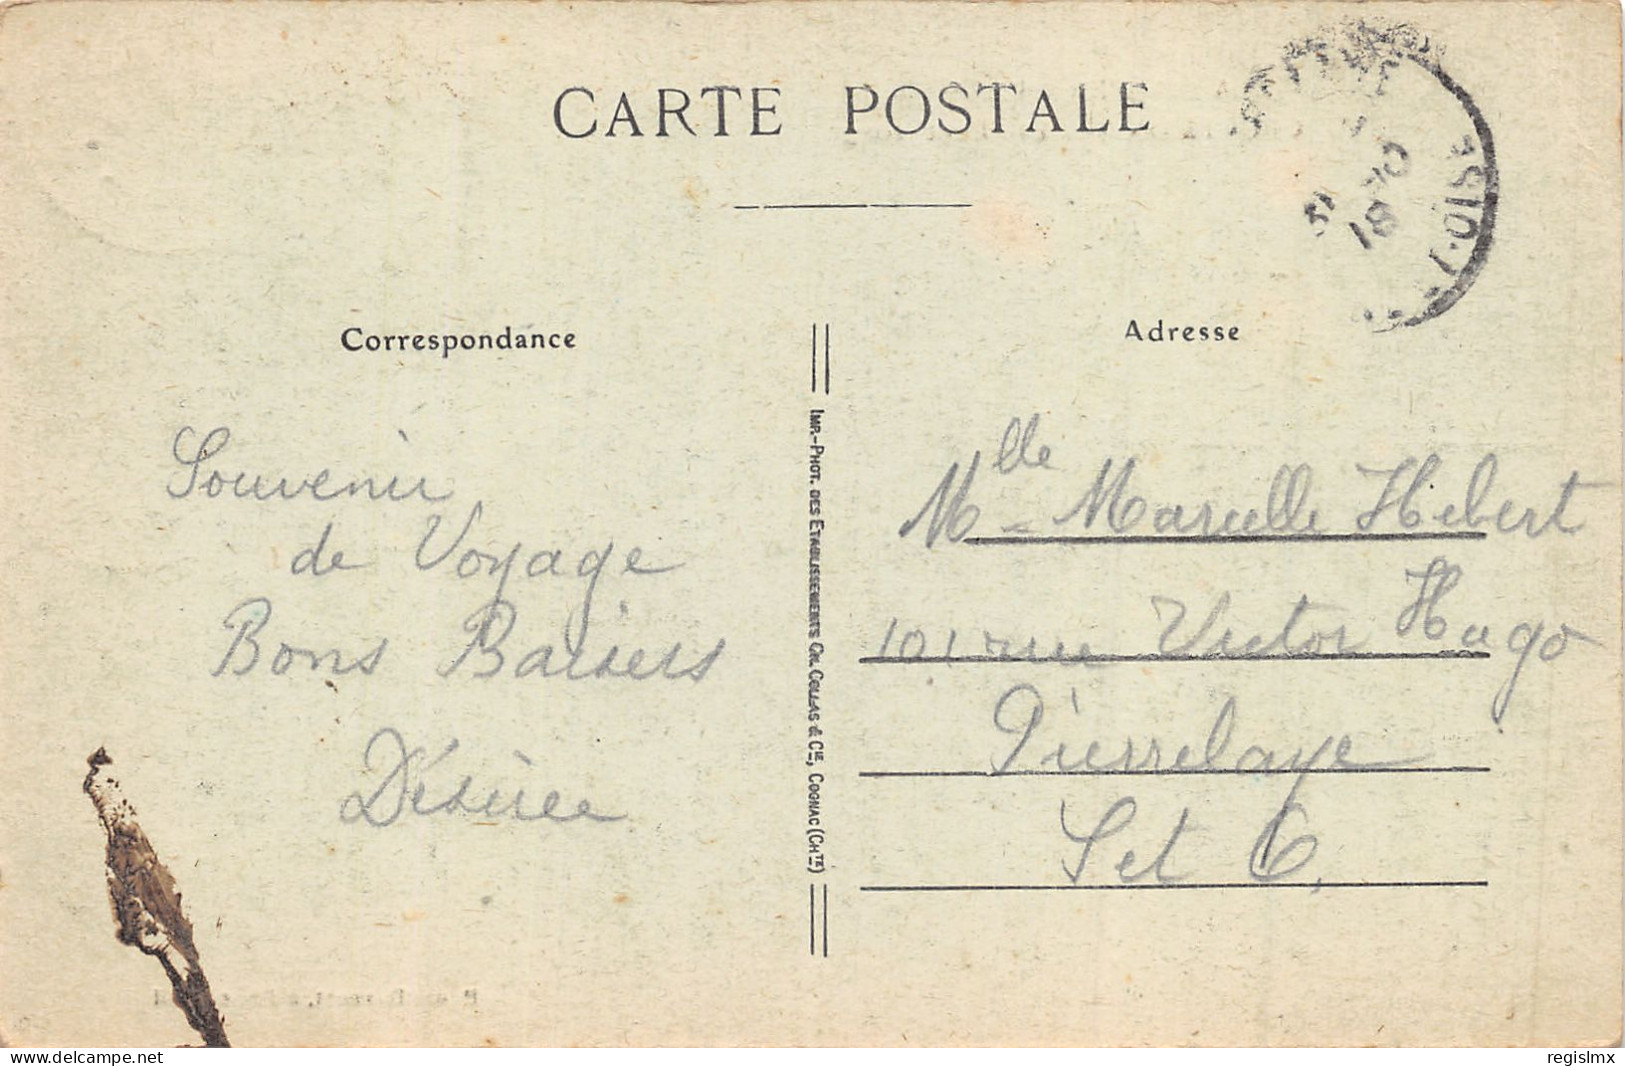 CARTE POSTALE
Correspondance
Souvenir
de Voyage
Bons Baisers
Désirée
IMP.-PHOT. DES ETABLISSEMENTS CH. COLLAS & CIE, COGNAC (CHTE)
Adresse
Mlle - Marcelle Hebert
101 rue Victor Hugo
Pierrelaye
Set O.
18
OISE
delcampe.net
regislmx